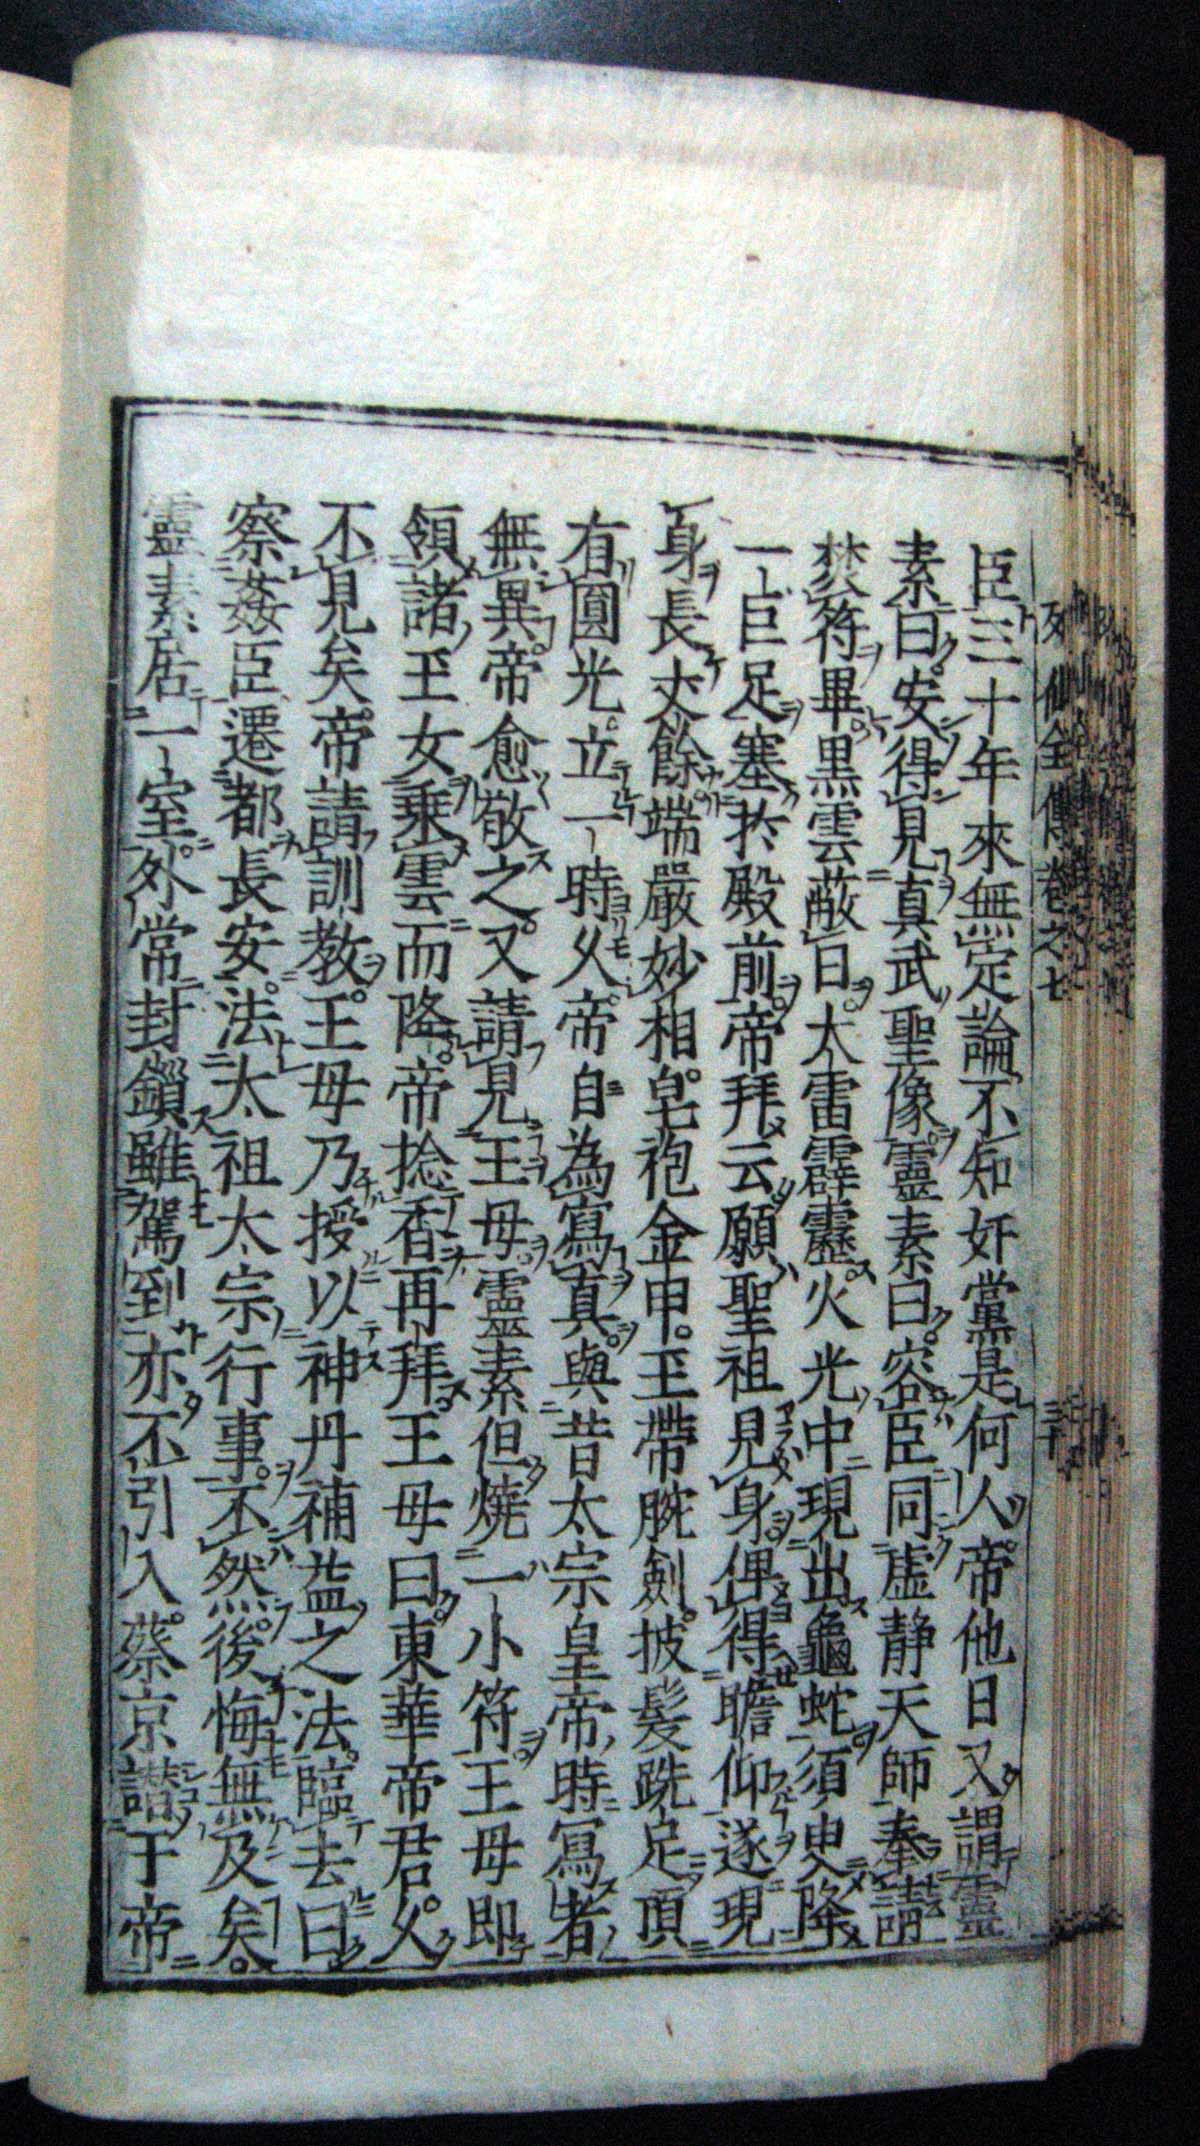 列仙全傳卷之七 三十
臣三十年來無定論不知奸黨是何人帝他日又謂靈
素曰安得見真武聖像靈素曰容臣同虛靜天師奉請
焚符畢黑雲蔽日大雷霹靂火光中現出龜蛇須臾降
一巨足塞於殿前帝拜云願聖祖見身俾得瞻仰遂現
身長丈餘端嚴妙相皂袍金甲玉帶腕劍披髮跣足頂
有圓光立一時久帝自為寫真與昔太宗皇帝時寫者
無異帝愈敬之又請見王母靈素但燒一小符王母即
領諸玉女乘雲而降帝捻香再拜王母曰東華帝君久
不見矣帝請訓教王母乃授以神丹補益之法臨去曰
察姦臣遷都長安法太祖太宗行事丕然後悔無及矣
靈素居一室外常封鎖雖駕到亦不引入蔡京譖于帝